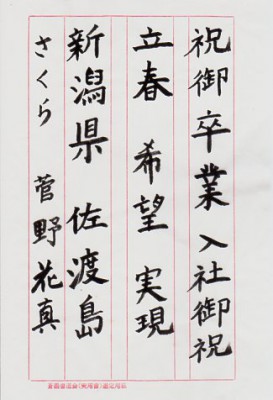 祝御卒業 入社御祝
立春 希望 実現
新潟県 佐渡島
さくら 菅野花真